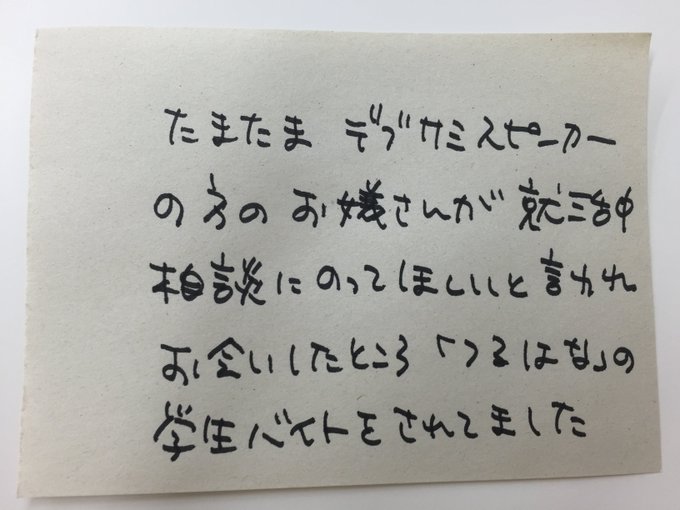 たまたま デブサミスピーカー
の方の お嬢さんが 就活中
相談にのってほしいと言われ
お会いしたところ「つるはな」の
学生バイトをされてました